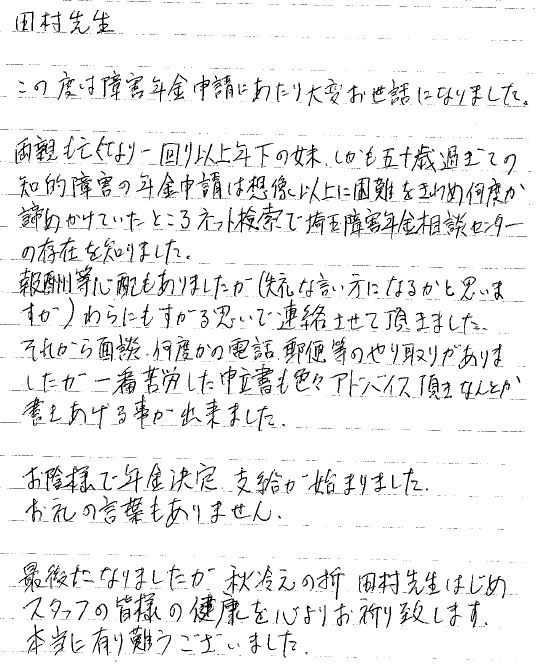 田村先生
この度は障害年金申請にあたり大変お世話になりました。
両親も亡くなり一回り以上年下の妹、しかも五十歳過ぎての
知的障害の年金申請は想像以上に困難をきわめ何度か
諦めかけていたところネット検索で埼玉障害年金相談センター
の存在を知りました。
報酬等心配もありましたが(失礼な言い方になるかと思いま
すが)わらにもすがる思いで連絡させて頂きました。
それから面談、何度かの電話、郵便等のやり取りがありま
したが一番苦労した申立書も色々アドバイス頂きなんとか
書きあげる事が出来ました。
お陰様で年金決定、支給が始まりました。
お礼の言葉もありません。
最後になりましたが秋冷えの折田村先生はじめ
スタッフの皆様の健康を心よりお祈り致します。
本当に有り難うございました。